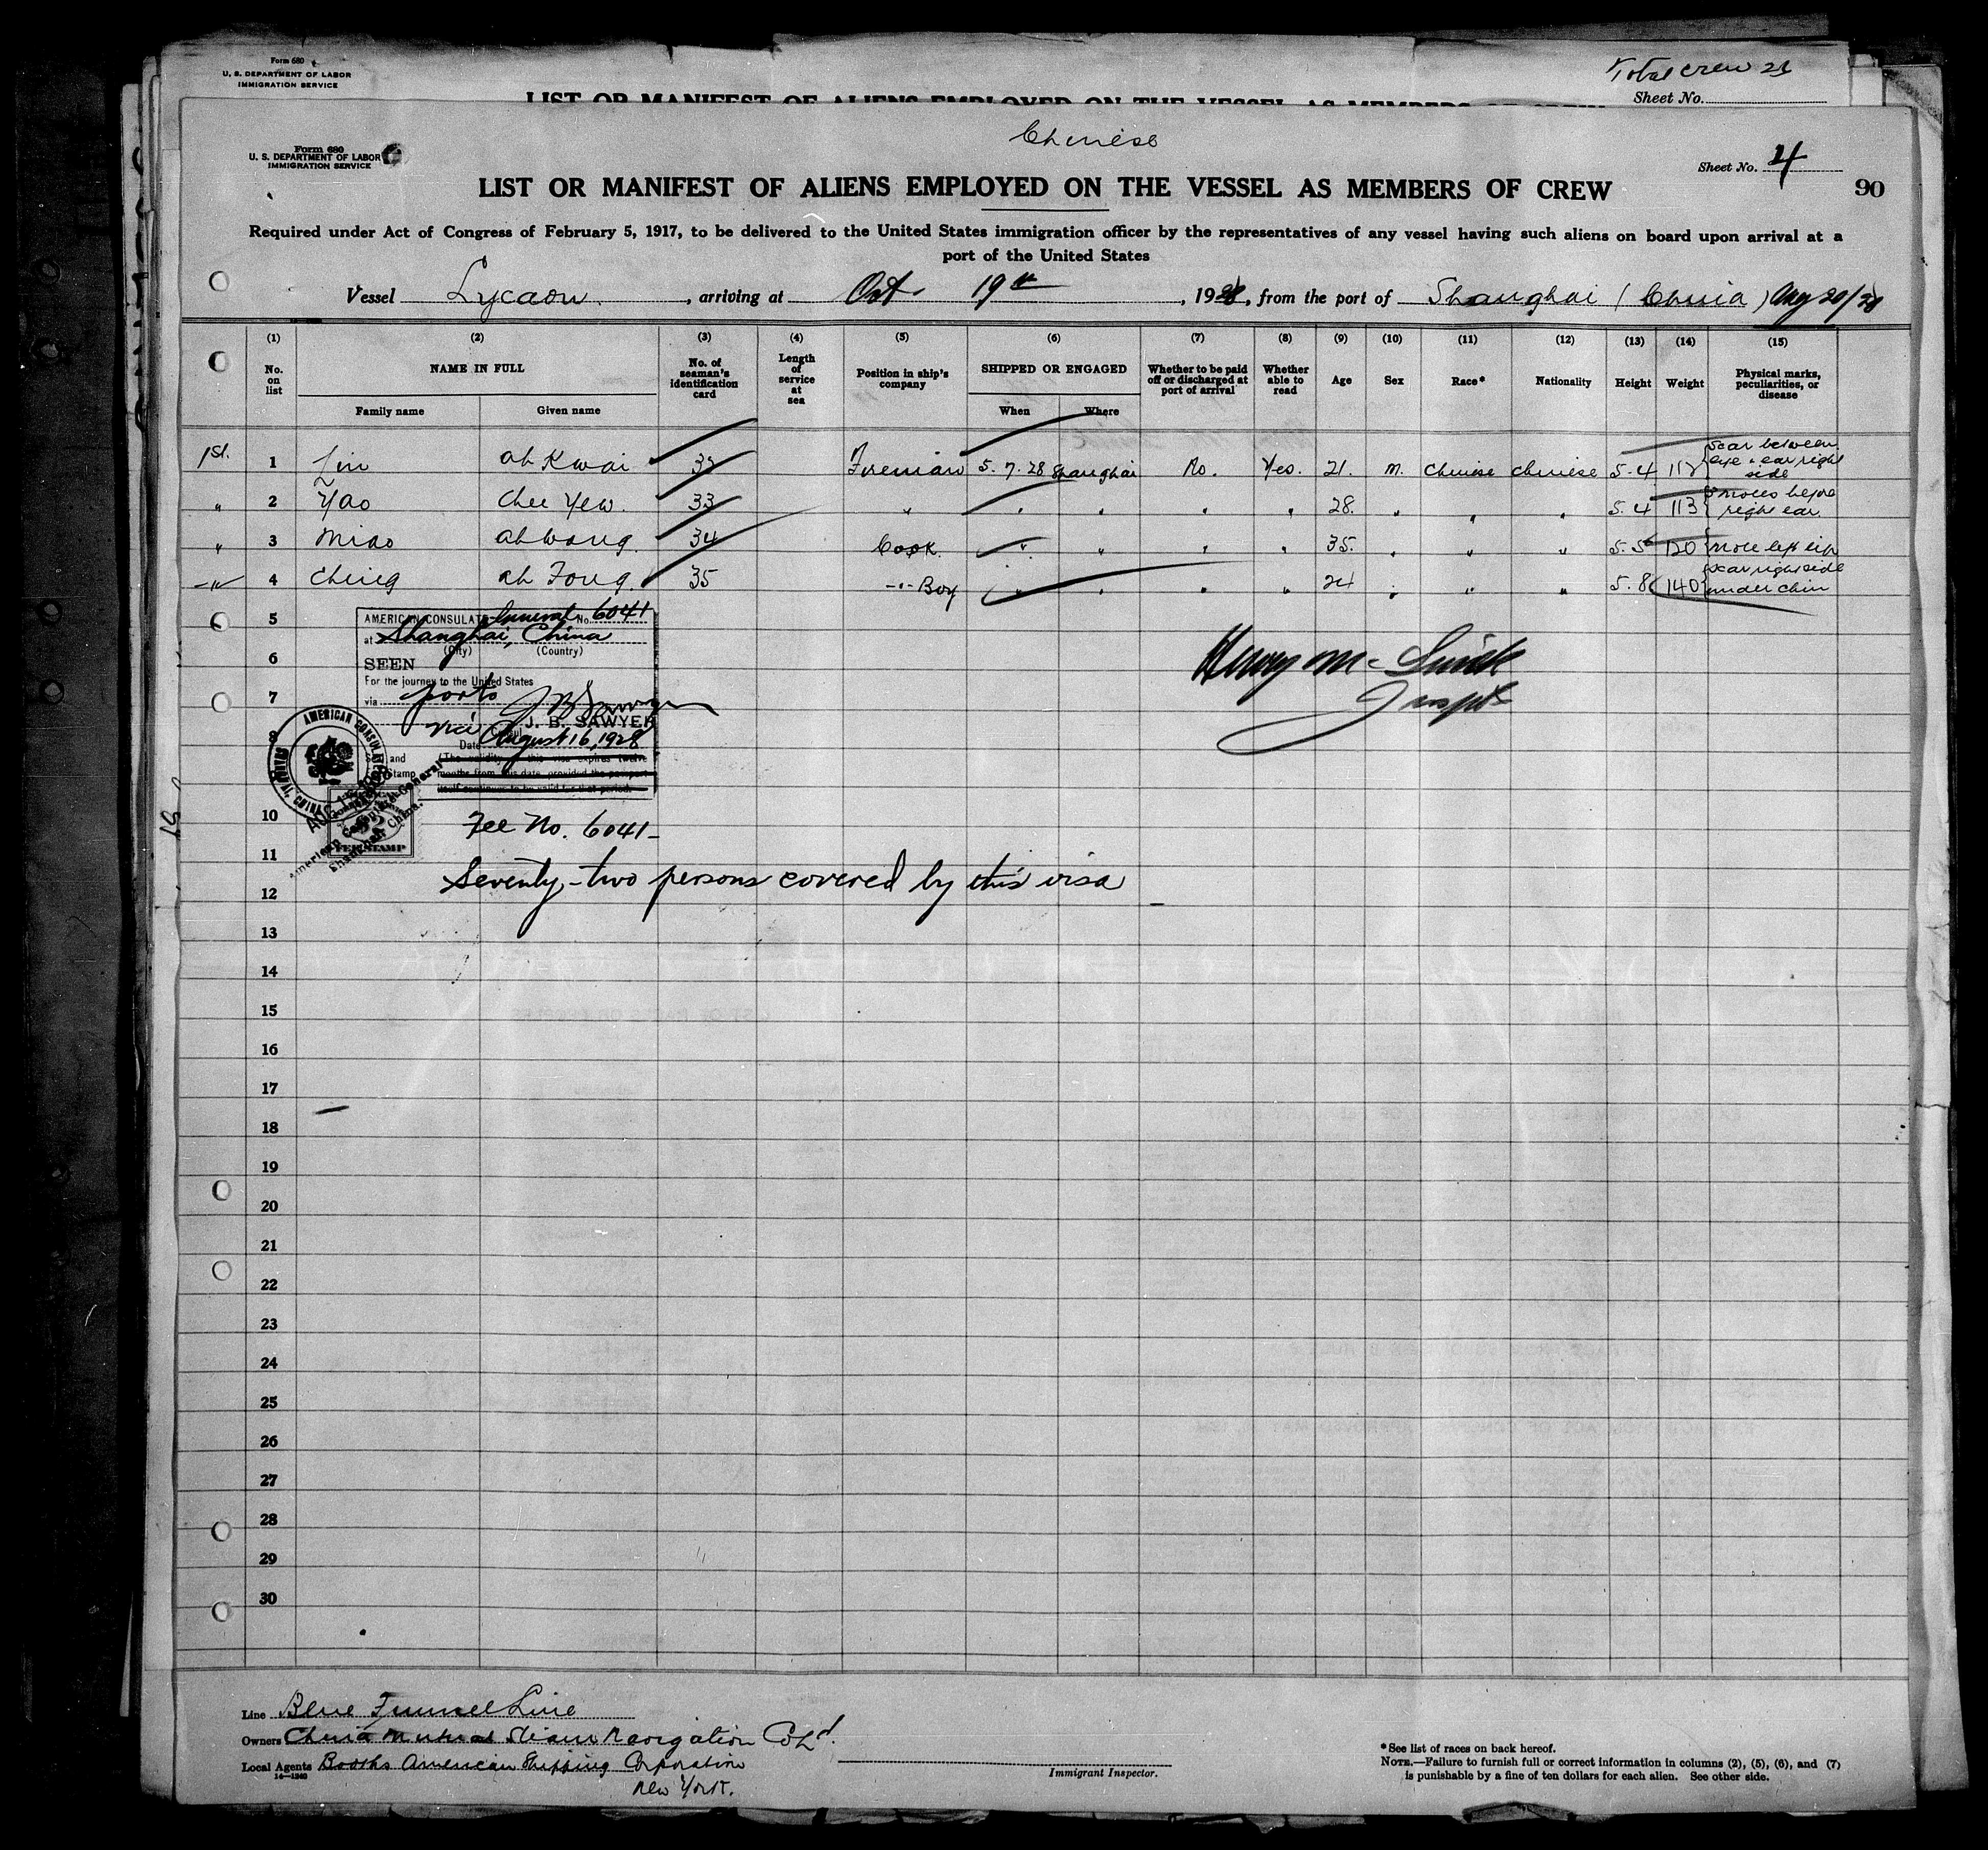 Form 680
U. S. DEPARTMENT OF LABOR
IMMIGRATION SERVICE
Total crew
Sheet No.
LIST OR MANIFEST OF ALIENS EMPLOYED ON THE VESSEL AS MEMBERS OF CREW
Chinese
Form 680
U. S. DEPARTMENT OF LABOR
IMMIGRATION SERVICE
Sheet No. 4
LIST OR MANIFEST OF ALIENS EMPLOYED ON THE VESSEL AS MEMBERS OF CREW
90
Required under Act of Congress of February 5, 1917, to be delivered to the United States immigration officer by the representatives of any vessel having such aliens on board upon arrival at a
port of the United States
Vessel Lycaon, arriving at Oct. 19th, 1928, from the port of Shanghai (China) Aug 20/28
(1) (2) (3) (4) (5) (6) (7) (8) (9) (10) (11) (12) (13) (14) (15)
No. on list
NAME IN FULL
Family name Given name
No. of seaman's identification card
Length of service at sea
Position in ship's company
SHIPPED OR ENGAGED
When Where
Whether to be paid off or discharged at port of arrival
Whether able to read
Age
Sex
Race*
Nationality
Height
Weight
Physical marks, peculiarities, or disease
1st. 1 Ah Kwai 32 Fireman 5.7.28 Shanghai No. Yes. 21. M. Chinese Chinese 5-4 112 Scar between eye & ear right side
" 2 Yao Chee Yew. 33 " " " " " 28. " " " 5.4 113 moles before right ear.
" 3 Miao Ah Wong. 34 Cook. " " " " 35. " " " 5.5 120 mole left lip
" 4 Ching Ah Fong. 35 " Boy " " " " 24 " " " 5.8 140 scar right side under chin
5
6
7
8
10
11
12
13
14
15
16
17
18
19
20
21
22
23
24
25
26
27
28
29
30
AMERICAN CONSULATE General No. 6041
at Shanghai, China
(City) (Country)
SEEN
For the journey to the United States
via ports
J. B. SAWYER
Date August 16, 1928
Seal and Stamp
(The validity of this visa expires twelve
months from this date, provided the passport
itself continues to be valid for that period.
AMERICAN CONSULATE GENERAL
SHANGHAI, CHINA
American Consulate General
Shanghai China.
FEE STAMP
Fee No. 6041-
Seventy-two persons covered by this visa
Line Blue Funnel Line
Owners China Mutual Steam Navigation Co Ld.
Local Agents Booths American Shipping Corporation
14—1240
New York.
Immigrant Inspector.
* See list of races on back hereof.
NOTE.—Failure to furnish full or correct information in columns (2), (5), (6), and (7)
is punishable by a fine of ten dollars for each alien. See other side.